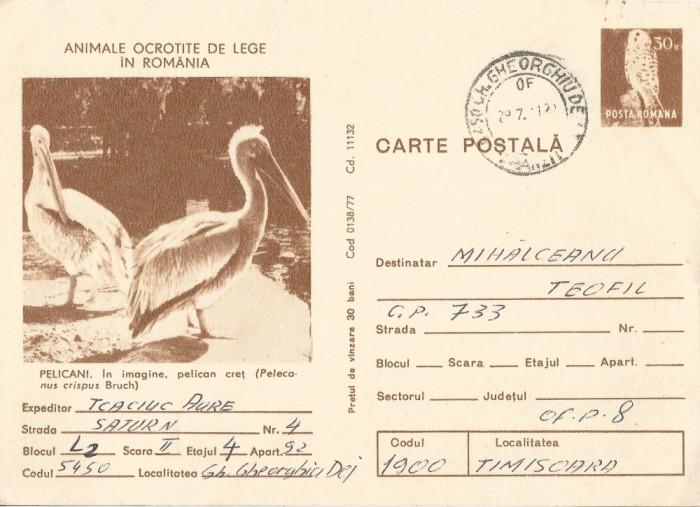 ANIMALE OCROTITE DE LEGE
ÎN ROMÂNIA
PELICANI. În imagine, pelican creț (Peleca-
nus crispus Bruch)
Expeditor TCACIUC AURE
Strada SATURN Nr. 4
Blocul L2 Scara II Etajul 4 Apart. 92
Codul 5450 Localitatea Gh. Gheorghiu Dej
Prețul de vînzare 30 bani Cod 0138/77 Cd. 11132
GH. GHEORGHIU DEJ
OF
30 B
POSTA ROMANA
CARTE POȘTALĂ
Destinatar MIHĂLCEANU
TEOFIL
C.P. 733
Strada Nr.
Blocul Scara Etajul Apart.
Sectorul Județul
OF.P. 8
Codul Localitatea
1900 TIMISOARA